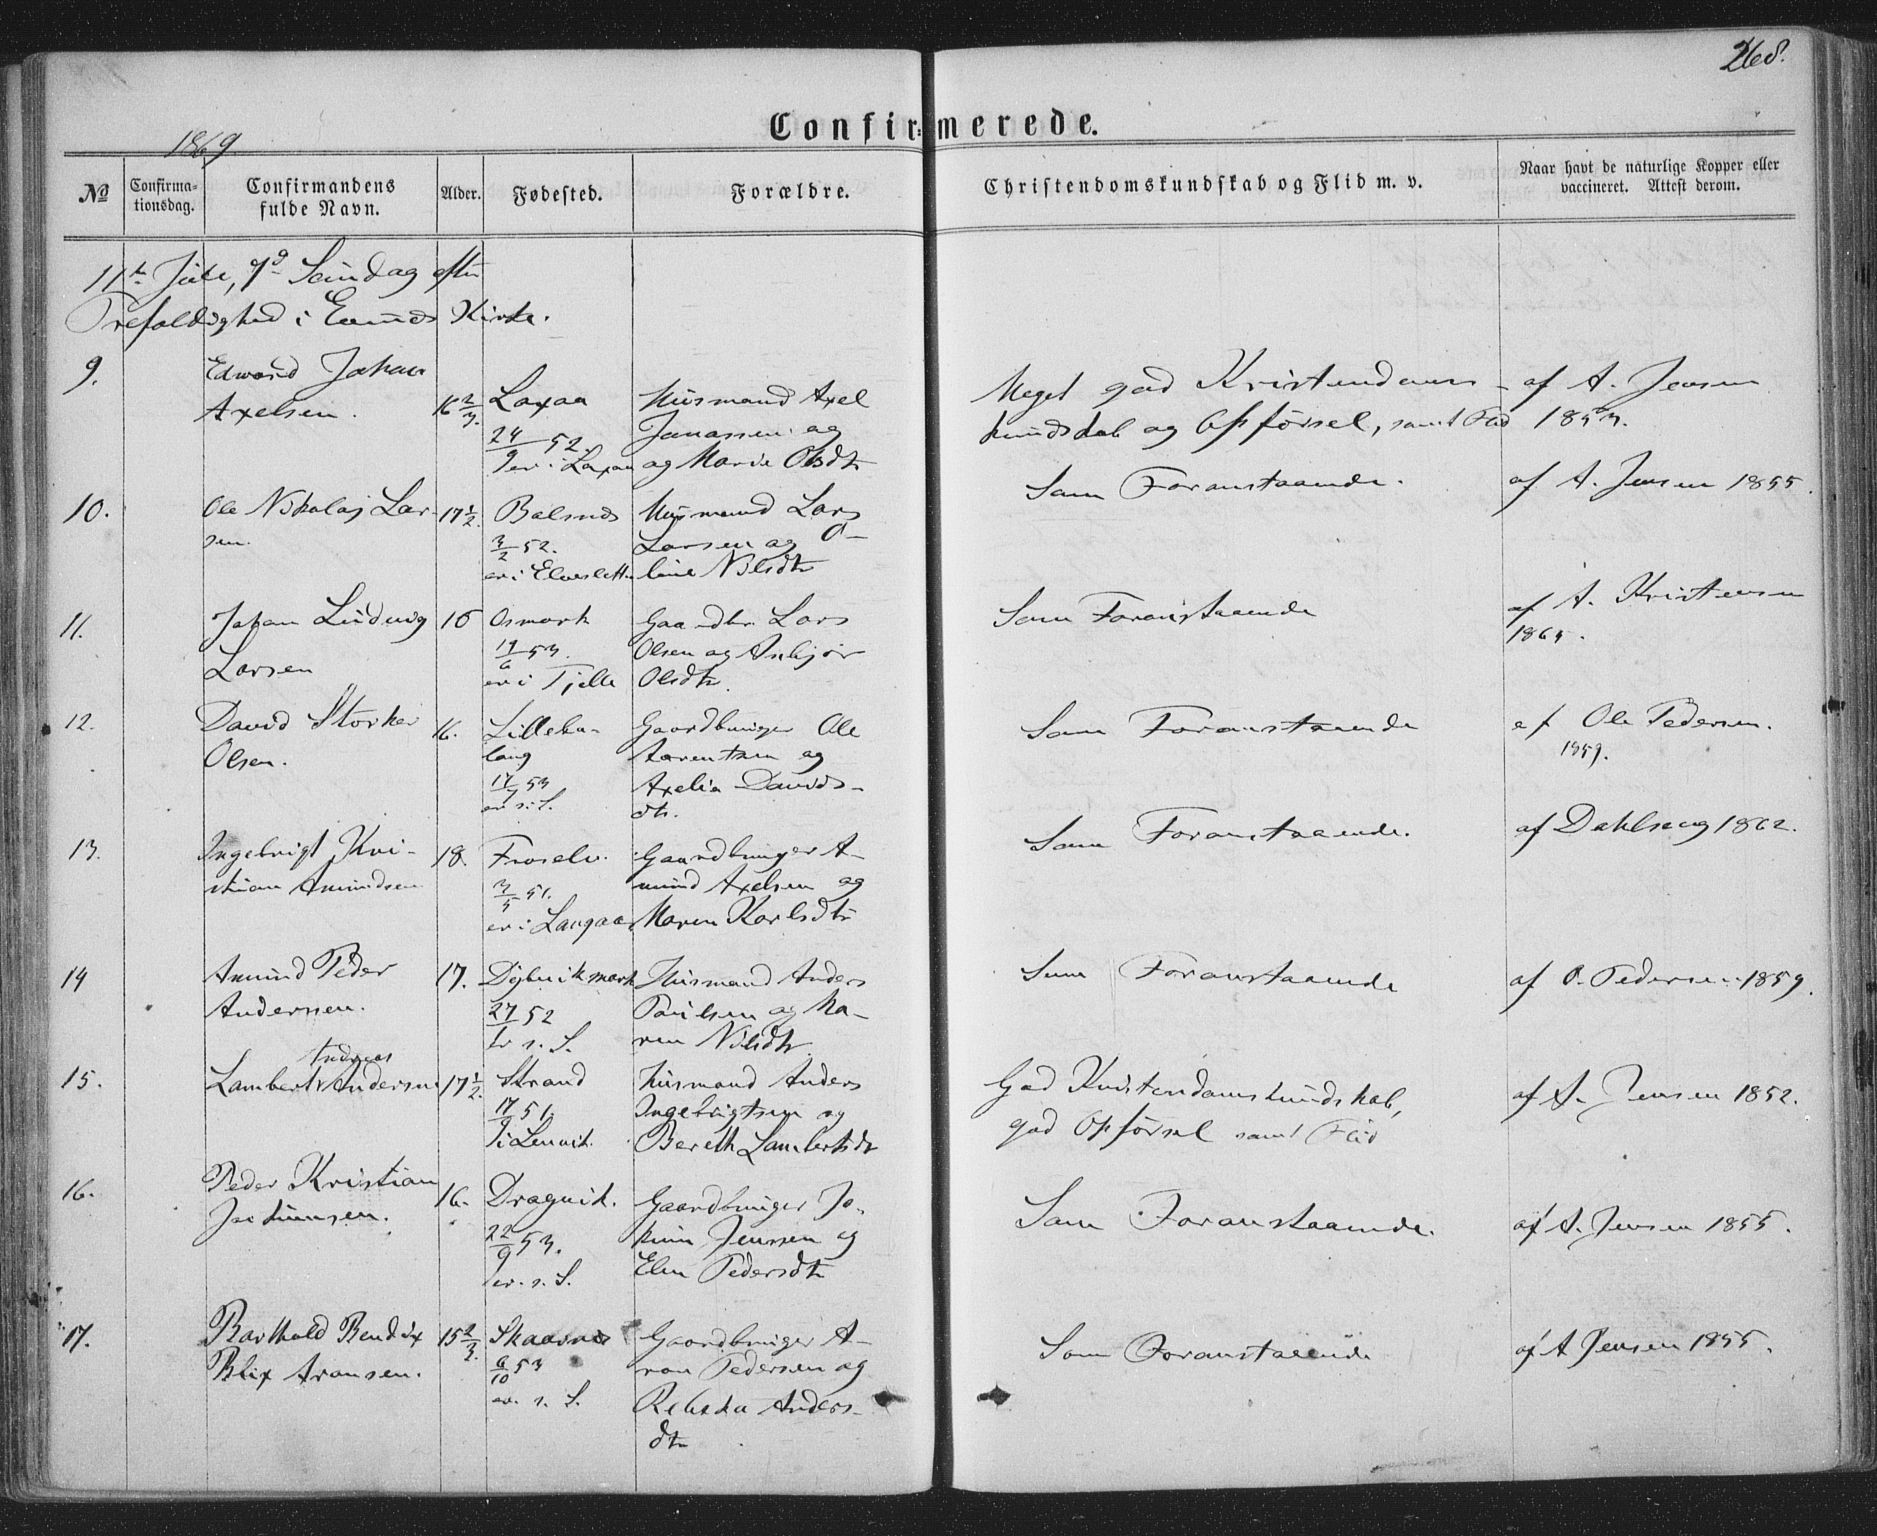 268.
Confirmerede.
1869
No
Confirma-
tionsdag.
Confirmandens
fulde Navn.
Alder.
Fødested.
Forældre.
Christendomskundskab og Flid m. v.
Naar havt de naturlige Kopper eller
vaccineret. Attest derom.
11te Juli, 7de Søndag efter
Trefoldighed i Evenes Kirke.
9.
Edward Johan
Axelsen.
16 2/3.
Laxaa
24/9 52.
er i Laxaa
Husmand Axel
Jonassen og
og Marie Olsdtr
Meget god Kristendoms-
kundskab og Opførsel, samt Flid
af A. Jensen
1853.
10.
Ole Nikolaj Lar-
sen.
17 1/2.
Balsnes
3/2 52.
er i Elveslett
Husmand Lars
Larsen og O-
line Nilsdtr
Som Foranstaaende.
af A. Jensen 1855.
11.
Johan Ludvig
Larsen
16
Osmark
19/6 53.
er i Tjelle
Gaardbr. Lars
Olsen og Anbjør
Olsdtr.
Som Foranstaaende
af A. Kristensen
1865.
12.
David Storker
Olsen.
16.
Lillebu-
17/7 53
er s. S.
Gaardbruger Ole
Arentsen og
Axelia Davids-
dtr.
Som Foranstaaende
af Ole Pedersen.
1859.
13.
Ingebrigt Kri-
stian Amundsen
18.
Froselv.
3/5 51.
er i Langaas
Gaardbruger A-
mund Axelsen og
Maren Karlsdtr
Som Foranstaaende.
af Dahlseng 1862.
14
Amund Peder
Andersen.
17.
Dybvikmark
27/7 52
er s. S.
Husmand Anders
Paulsen og Ma-
ren Nilsdtr.
Som Foranstaaende
af O. Pedersen 1859.
15.
Andreas
Lambert Andersen
17 1/2.
Strand
17/9 51
i Lenvik.
Husmand Anders
Ingebrigtsen og
Bereth Lambertsdtr
God Kristendomskundskab,
god Opførsel samt Flid
af A. Jensen 1852.
16.
Peder Kristian
Jochumsen.
16.
Dragvik.
22/9 53.
er s. S.
Gaardbruger Jo-
kum Jenssen og
Elen Pedersdtr
Som Foranstaaende.
af A. Jensen 1855.
17.
Barthold Bendix
Blix Aronsen.
15 2/3.
Skaasnes
6/10 53
er s. S.
Gaardbruger A-
ron Pedersen og
Rebekka Anders-
dtr
Som Foranstaaende
af A Jensen 1855.